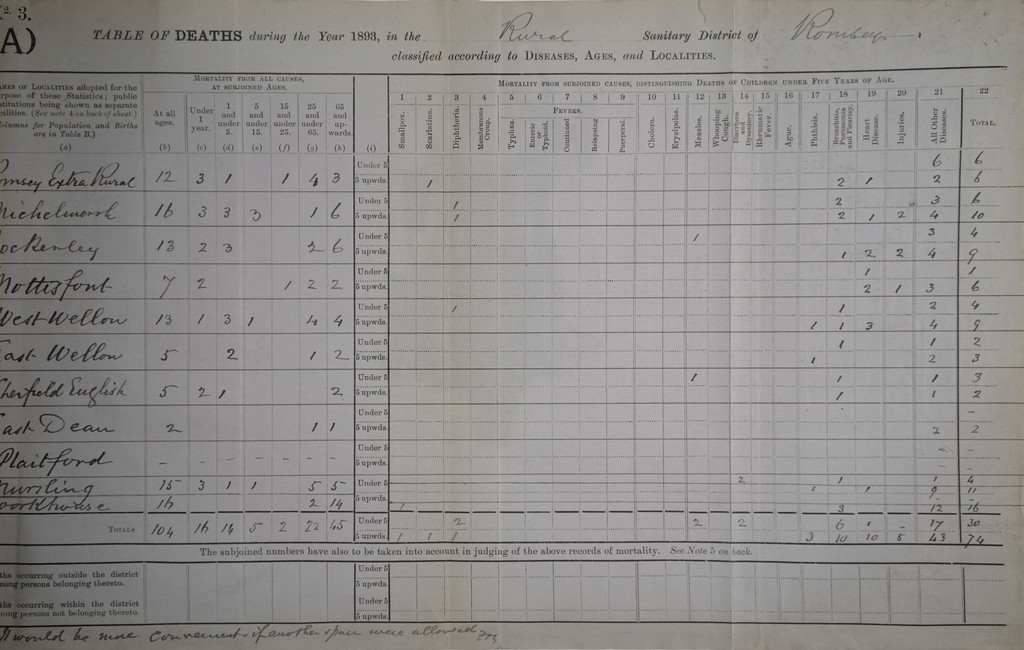 3.
A)
TABLE OF DEATHS during the Year 1893, in the Rural Sanitary District of Romsey.
classified according to DISEASES, AGES, and LOCALITIES.
MES OF LOCALITIES adopted for the
rpose of these Statistics; public
stitutions being shown as separate
calities. (See note 4 on back of sheet.)
olumns for Population and Births
are in Table B.)
(a)
MORTALITY FROM ALL CAUSES,
AT SUBJOINED AGES.
At all ages. (b)
Under 1 year. (c)
1 and under 5. (d)
5 and under 15. (e)
15 and under 25. (f)
25 and under 65. (g)
65 and up-wards. (h)
(i)
MORTALITY FROM SUBJOINED CAUSES, DISTINGUISHING DEATHS OF CHILDREN UNDER FIVE YEARS OF AGE.
1 2 3 4 5 6 7 8 9 10 11 12 13 14 15 16 17 18 19 20 21 22
FEVERS.
Smallpox.
Scarlatina.
Diphtheria.
Membranous Croup.
Typhus.
Enteric or Typhoid.
Continued
Relapsing
Puerperal.
Cholera.
Erysipelas.
Measles.
Whooping Cough.
Diarrhœa and Dysentery.
Rheumatic Fever.
Ague.
Phthisis.
Bronchitis, Pneumonia, and Pleurisy.
Heart Disease.
Injuries.
All Other Diseases.
TOTAL.
Under 5 6 6
omsey Extra Rural 12 3 1 1 4 3 5 upwds. 1 2 1 2 6
Under 5 1 2 3 6
Michelmersh 16 3 3 3 1 6 5 upwds. 1 2 1 2 4 10
Under 5 1 3 4
ockerley 13 2 3 2 6 5 upwds. 1 2 2 4 9
Under 5 1 1
Mottisfont 7 2 1 2 2 5 upwds. 2 1 3 6
Under 5 1 1 2 4
West Wellow 13 1 3 1 4 4 5 upwds. 1 1 3 4 9
Under 5 1 1 2
ast Wellow 5 2 1 2 5 upwds. 1 2 3
Under 5 1 1 1 3
Sherfield English 5 2 1 2 5 upwds. 1 1 2
Under 5 -
ast Dean 2 1 1 5 upwds. 2 2
Under 5 - -
Plaitford - - - - - - - 5 upwds. - -
Nursling 15 3 1 1 5 5 Under 5 2 1 1 4
5 upwds. 1 1 9 11
Workhouse 16 2 14 1 3 12 16
TOTALS 104 16 14 5 2 22 45 Under 5 2 2 2 6 1 - 17 30
5 upwds. 1 1 1 3 10 10 5 43 74
The subjoined numbers have also to be taken into account in judging of the above records of mortality. See Note 5 on back.
ths occurring outside the district
mong persons belonging thereto.
Under 5
5 upwds.
ths occurring within the district
mong persons not belonging thereto.
Under 5
5 upwds.
It would be more convenient if another space were allowed